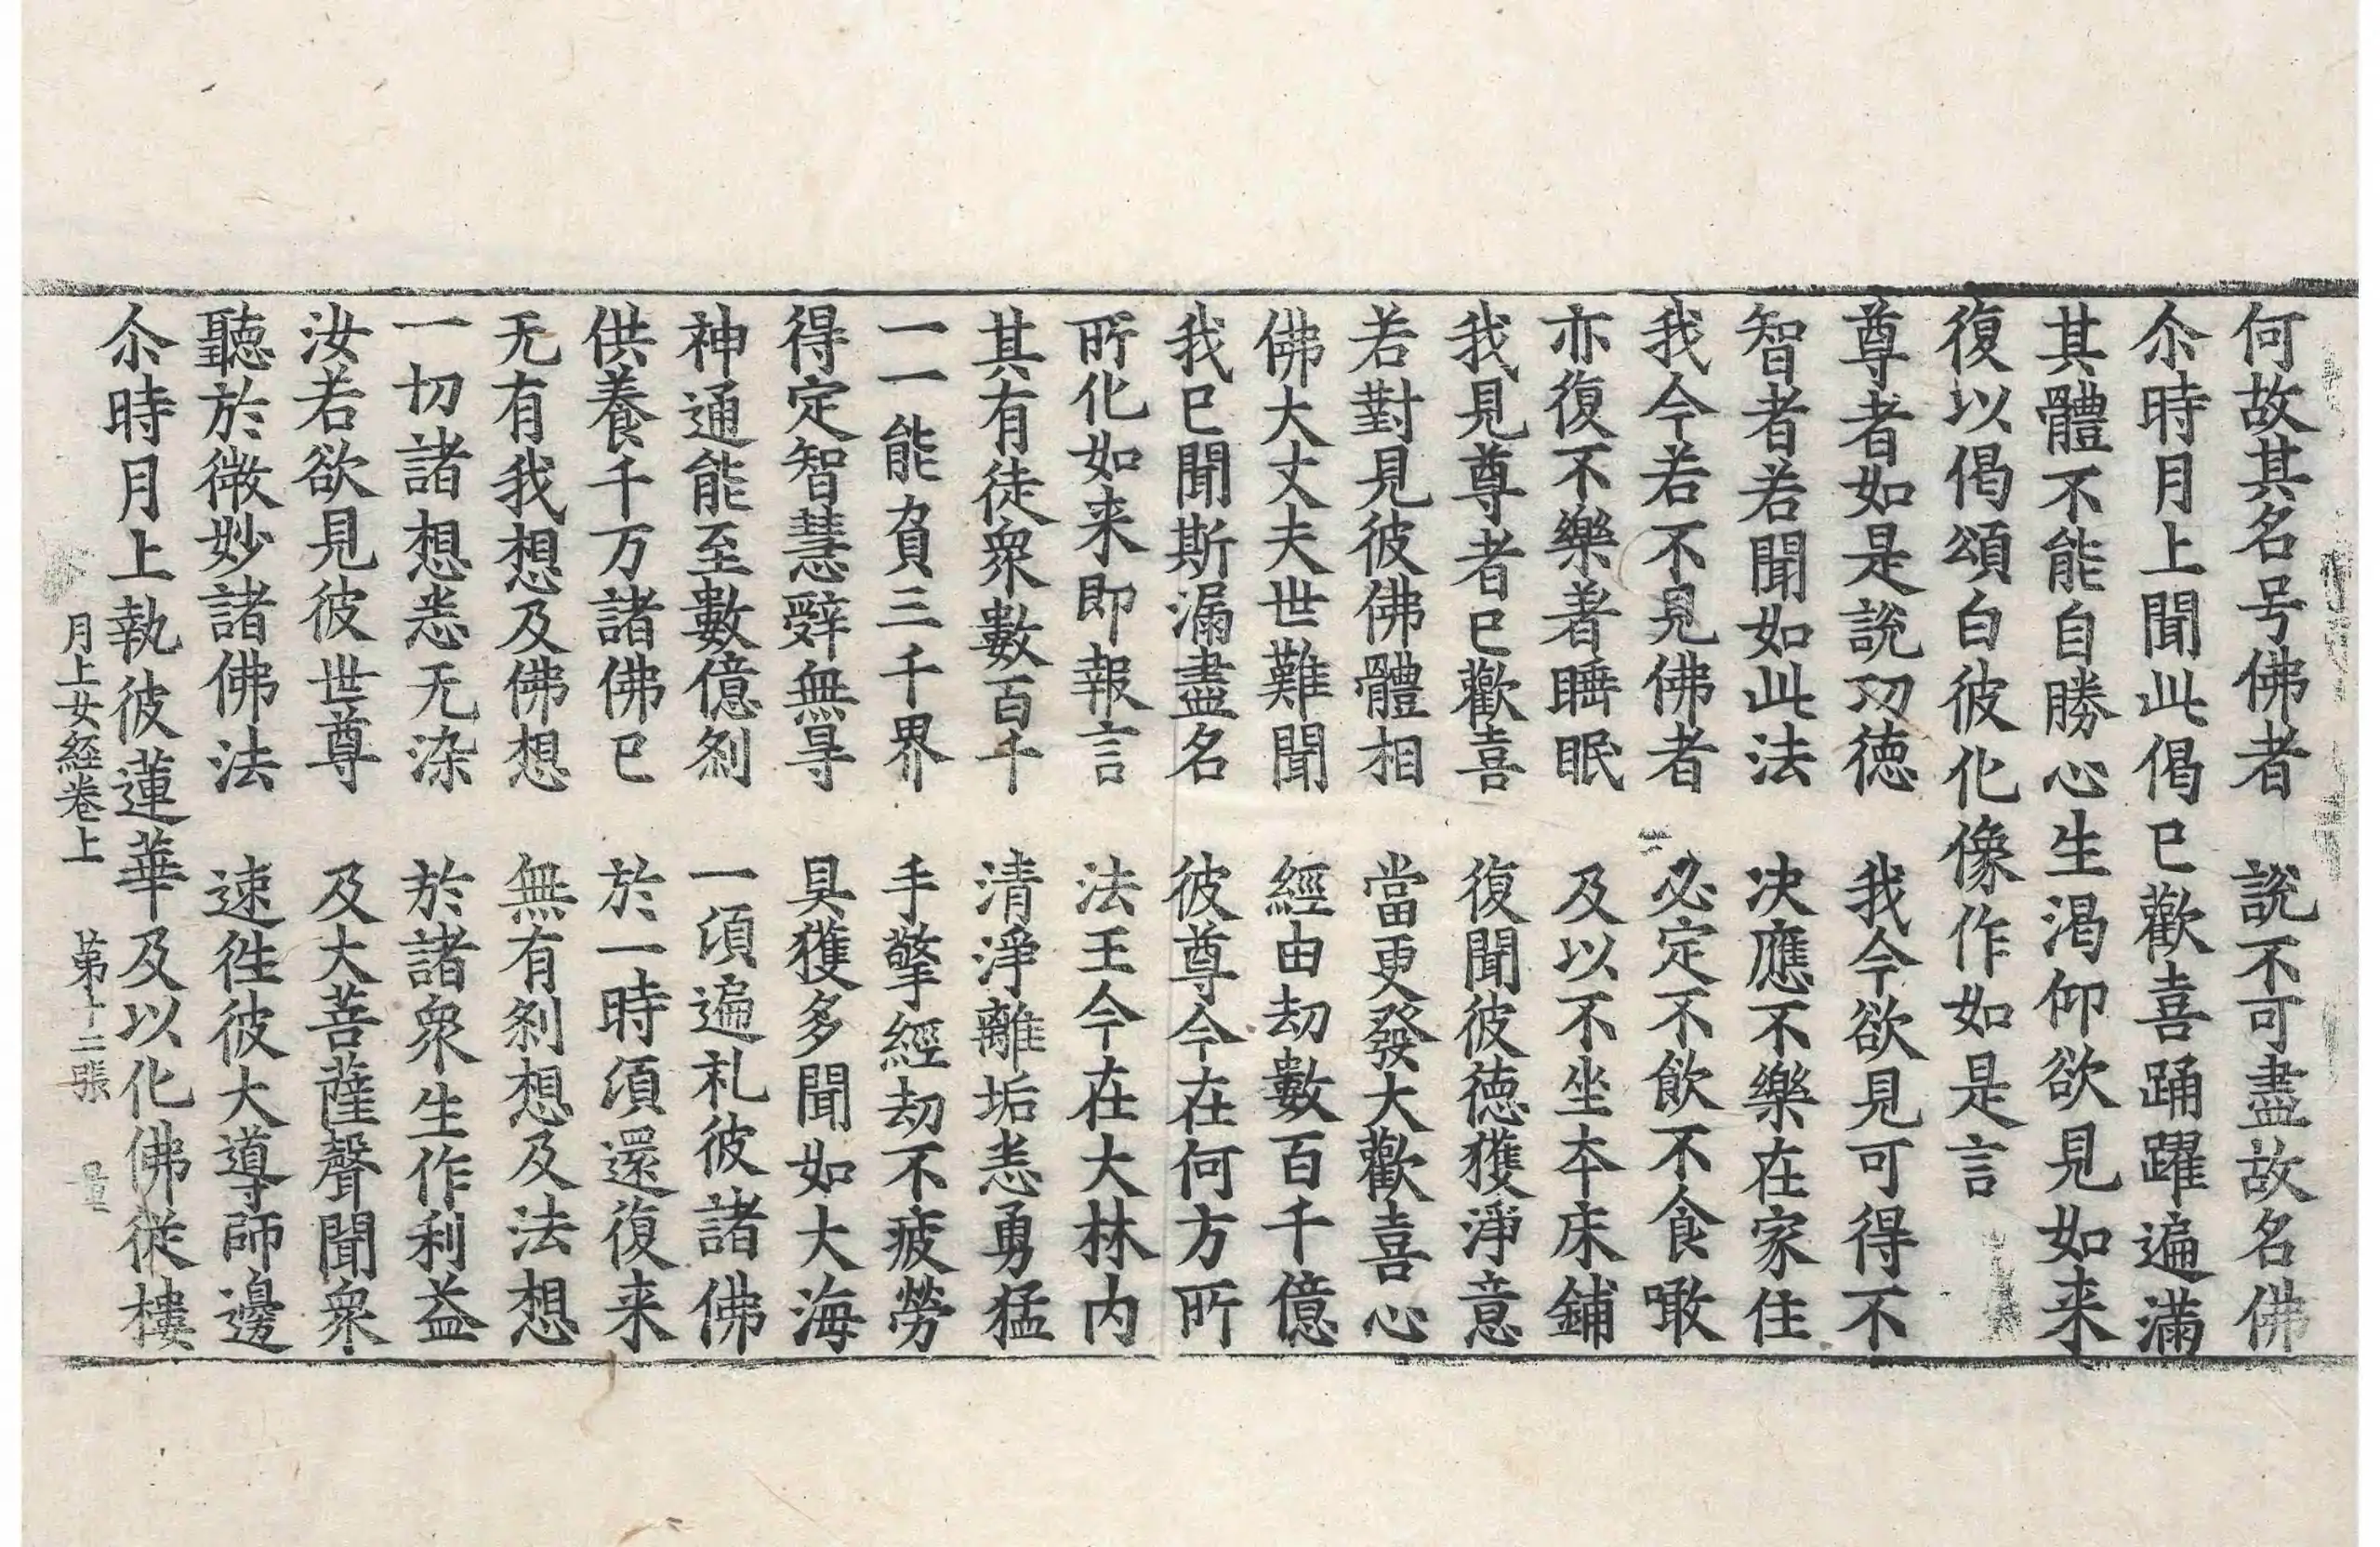 何故其名号佛者　說不可盡故名佛
尒時月上聞此偈已歡喜踊躍遍滿
其體不能自勝心生渴仰欲見如来
復以偈頌白彼化像作如是言
尊者如是說功德　我今欲見可得不
智者若聞如此法　决應不樂在家住
我今若不見佛者　必定不飲不食噉
亦復不樂著睡眠　及以不坐夲床鋪
我見尊者已歡喜　復聞彼德獲淨意
若對見彼佛體相　當更發大歡喜心
佛大丈夫世難聞　經由劫數百千億
我已聞斯漏盡名　彼尊今在何方所
所化如来即報言　法王今在大林内
其有徒衆數百千　清淨離垢恙勇猛
一一能負三千界　手擎經劫不疲勞
得定智慧辯無㝵　具獲多聞如大海
神通能至數億刹　一湏遍礼彼諸佛
供養千万諸佛已　於一時湏還復来
无有我想及佛想　無有刹想及法想
一切諸想悉无染　於諸衆生作利益
汝若欲見彼世尊　及大菩薩聲聞衆
聽於微妙諸佛法　速徃彼大導師邊
尒時月上執彼蓮華及以化佛従樓
月上女經卷上　第十二張　量